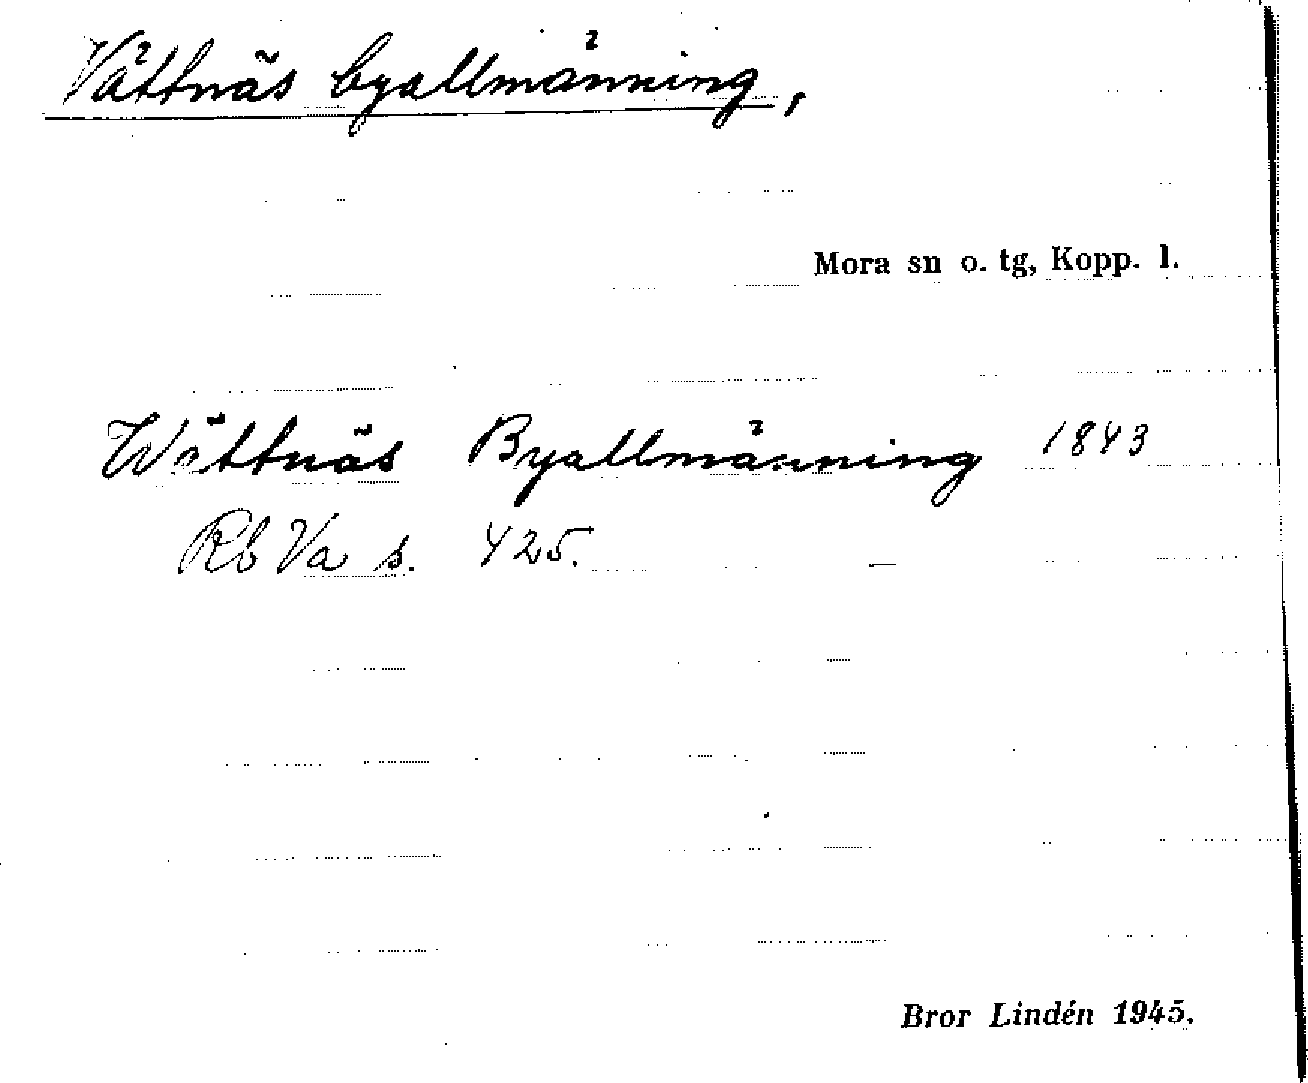 Vättnäs byallmänning,
Mora sn o. tg, Kopp. l.
Wättnäs Byallmänning 1843
Rb Va s. 425.
Bror Lindén 1945.